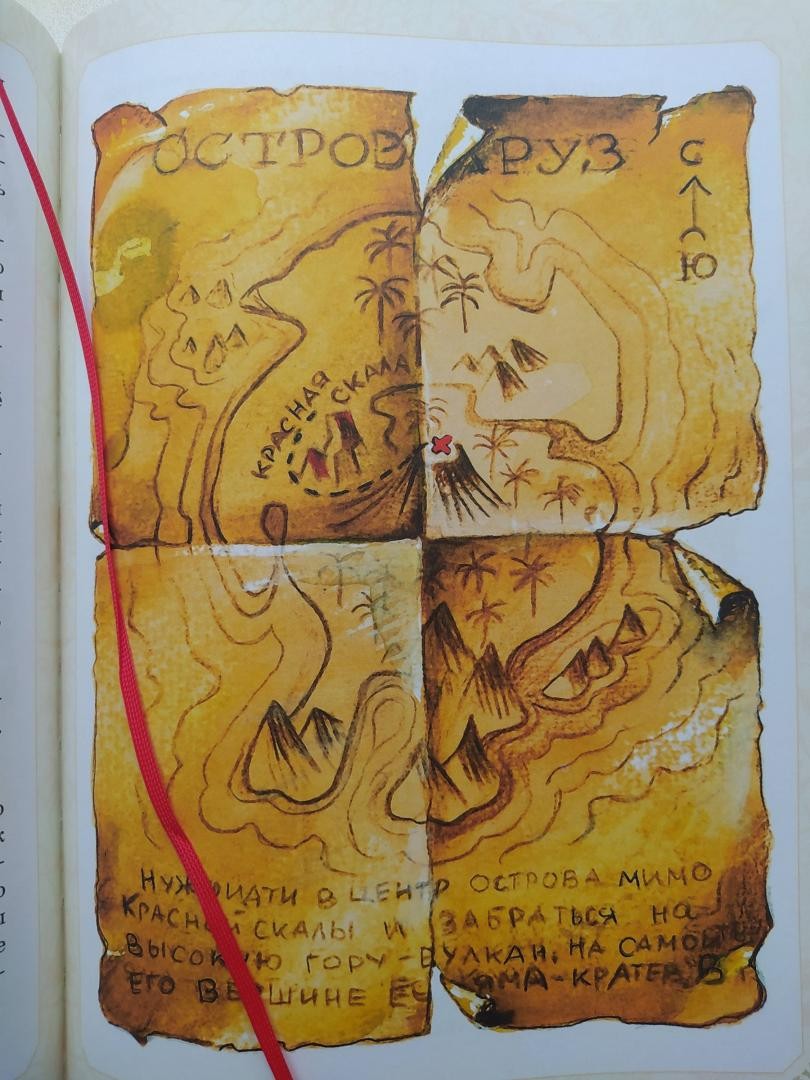 ОСТРОВ
С
Ю
КРАСНАЯ СКАЛА
ИДТИ В ЦЕНТР ОСТРОВА МИМО
КРАСНОЙ СКАЛЫ И ЗАБРАТЬСЯ НА
ВЫСОКУЮ ГОРУ-ВУЛКАН. НА САМОЙ
ЕГО ВЕРШИНЕ ЯМА-КРАТЕР. В